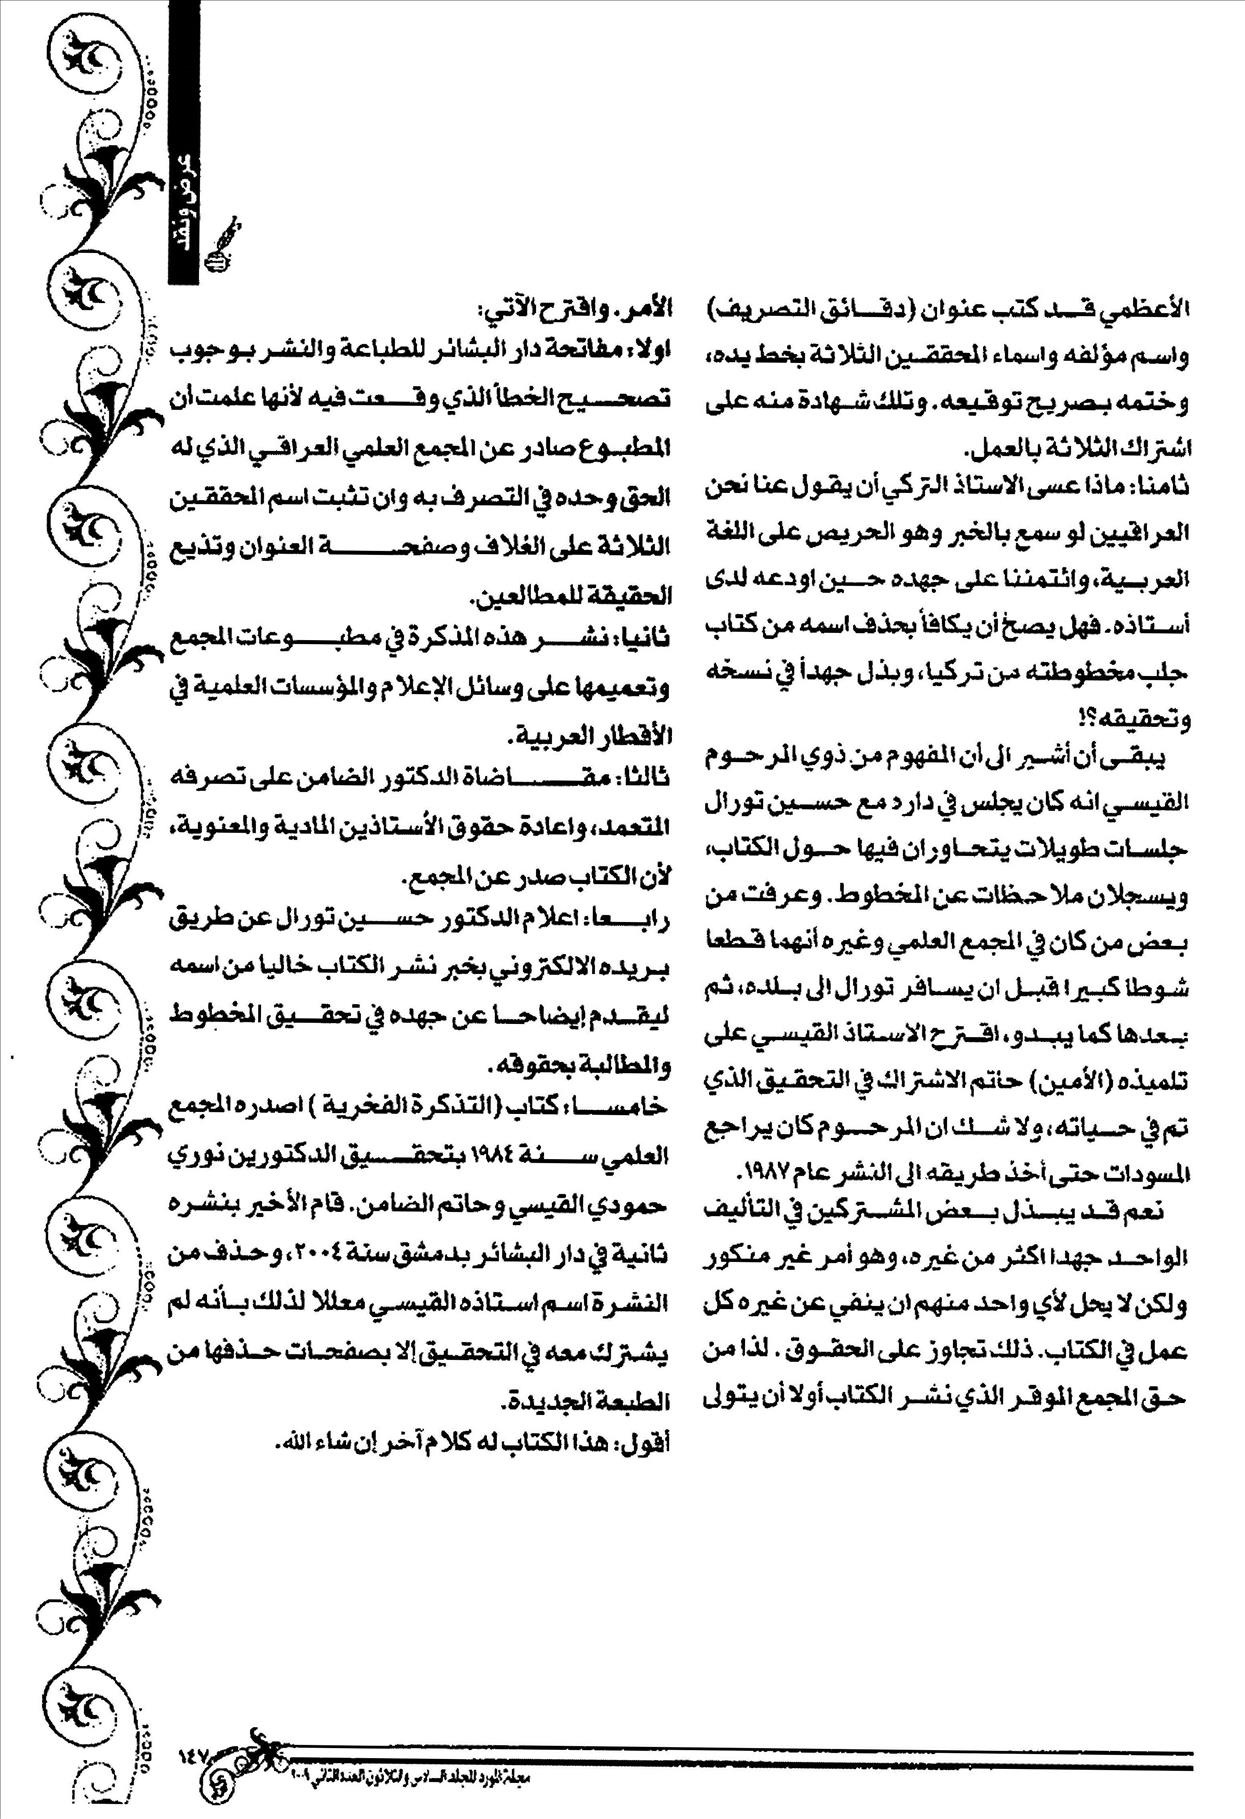 عرض ونقد
الأعظمي قد كتب عنوان (دقائق التصريف)
واسم مؤلفه واسماء المحققين الثلاثة بخط يده،
وختمه بصريح توقيعه. وتلك شهادة منه على
اشتراك الثلاثة بالعمل.
ثامنا: ماذا عسى الاستاذ التركي أن يقول عنا نحن
العراقيين لو سمع بالخبر وهو الحريص على اللغة
العربية، وائتمننا على جهده حين اودعه لدى
أستاذه. فهل يصح أن يكافأ بحذف اسمه من كتاب
جلب مخطوطته من تركيا، وبذل جهداً في نسخه
وتحقيقه؟!
يبقى أن أشير الى أن المفهوم من ذوي المرحوم
القيسي انه كان يجلس في داره مع حسين تورال
جلسات طويلات يتحاوران فيها حول الكتاب،
ويسجلان ملاحظات عن المخطوط. وعرفت من
بعض من كان في المجمع العلمي وغيره أنهما قطعا
شوطا كبيرا قبل ان يسافر تورال الى بلده، ثم
بعدها كما يبدو، اقترح الاستاذ القيسي على
تلميذه (الأمين) حاتم الاشتراك في التحقيق الذي
تم في حياته، ولا شك ان المرحوم كان يراجع
المسودات حتى أخذ طريقه الى النشر عام ١٩٨٧.
نعم قد يبذل بعض المشتركين في التأليف
الواحد جهدا اكثر من غيره، وهو أمر غير منكور
ولكن لا يحل لأي واحد منهم ان ينفي عن غيره كل
عمل في الكتاب. ذلك تجاوز على الحقوق . لذا من
حق المجمع الموقر الذي نشر الكتاب أولا أن يتولى
الأمر. واقترح الآتي:
اولا: مفاتحة دار البشائر للطباعة والنشر بوجوب
تصحيح الخطأ الذي وقعت فيه لأنها علمت أن
المطبوع صادر عن المجمع العلمي العراقي الذي له
الحق وحده في التصرف به وان تثبت اسم المحققين
الثلاثة على الغلاف وصفحة العنوان وتذيع
الحقيقة للمطالعين.
ثانيا: نشر هذه المذكرة في مطبوعات المجمع
وتعميمها على وسائل الإعلام والمؤسسات العلمية في
الأقطار العربية.
ثالثا: مقاضاة الدكتور الضامن على تصرفه
المتعمد، واعادة حقوق الأستاذين المادية والمعنوية،
لأن الكتاب صدر عن المجمع.
رابعا: اعلام الدكتور حسين تورال عن طريق
بريده الالكتروني بخبر نشر الكتاب خاليا من اسمه
ليقدم إيضاحا عن جهده في تحقيق المخطوط
والمطالبة بحقوقه.
خامسا: كتاب (التذكرة الفخرية ) اصدره المجمع
العلمي سنة ١٩٨٤ بتحقيق الدكتورين نوري
حمودي القيسي وحاتم الضامن. قام الأخير بنشره
ثانية في دار البشائر بدمشق سنة ٢٠٠٤، وحذف من
النشرة اسم استاذه القيسي معللا لذلك بأنه لم
يشترك معه في التحقيق إلا بصفحات حذفها من
الطبعة الجديدة.
أقول: هذا الكتاب له كلام آخر إن شاء الله.
١٤٧
مجلة المورد المجلد السادس والثلاثون العدد الثاني ٢٠٠٩